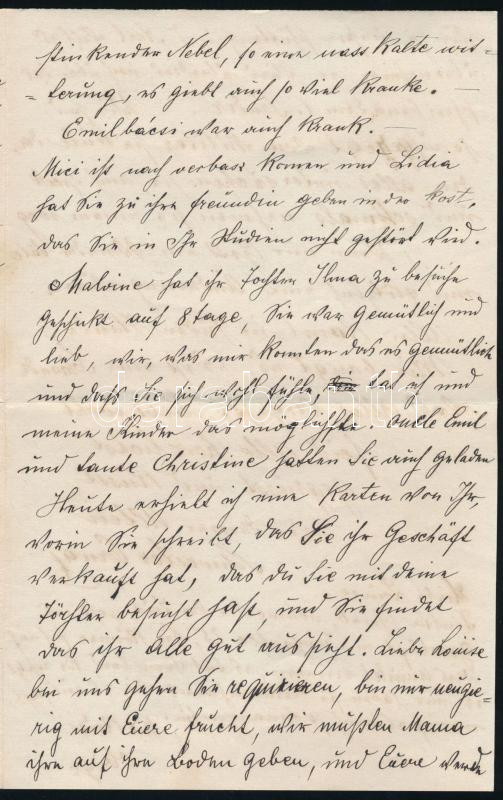 stinkender Nebel, so eine nass kalte wit-
-terung, es giebt auch so viel kranke. —
Emilbácsi war auch krank. —
Mici ist nach verbasz komen und Lidia
hat Sie zu ihre freundin geben in der kost,
das Sie in Ihr Studien nicht gestört wird.
Malvine hat ihr Tochter Ilma zu besuche
geschikt auf 8 tage, Sie war gemütlich und
lieb, wir, was wir konnten das es gemütlich
und dass Sie sich wohl fühle, tat ich und
meine Kinder das möglichste. Oncle Emil
und tante Christine hatten Sie auch geladen
Heute erhielt ich eine Karten von Ihr,
vorin Sie schreibt, das Sie ihr Geschäft
verkauft hat, das du Sie mit deine
Töchter besucht hast, und Sie findet
das ihr Alle gut aussieht. Liebe Louise
bei uns gehen Sie requiriren, bin nur neugie-
rig mit Euere frucht, wir mussten Mama
ihre auf ihren Boden geben, und Euere werde
darabanth